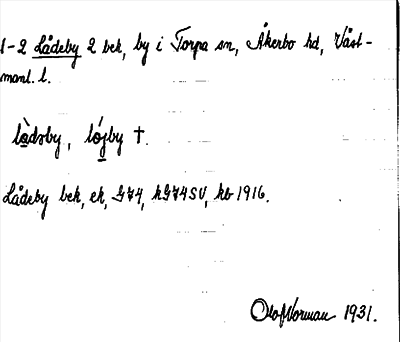 1-2 Lådeby 2 bek, by i Torpa sn, Åkerbo hd, Väst-
manl. l.
làdsby, lǿjby †.
Lådeby bek, ek, G74, hG74SV, kb 1916.
Olof Norman 1931.